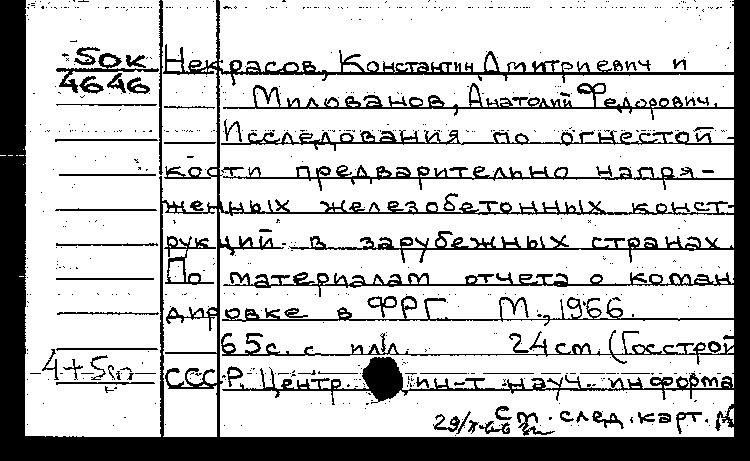 50к
4646
Некрасов, Константин Дмитриевич и
Милованов, Анатолий Федорович.
Исследования по огнестой-
кости предварительно напря-
женных железобетонных конст-
рукций в зарубежных странах.
По материалам отчета о коман
дировке в ФРГ. М., 1966.
65с. с илл. 24 см. (Госстрой
4+5
СССР. Центр. ин-т науч. информа
См. след. карт.